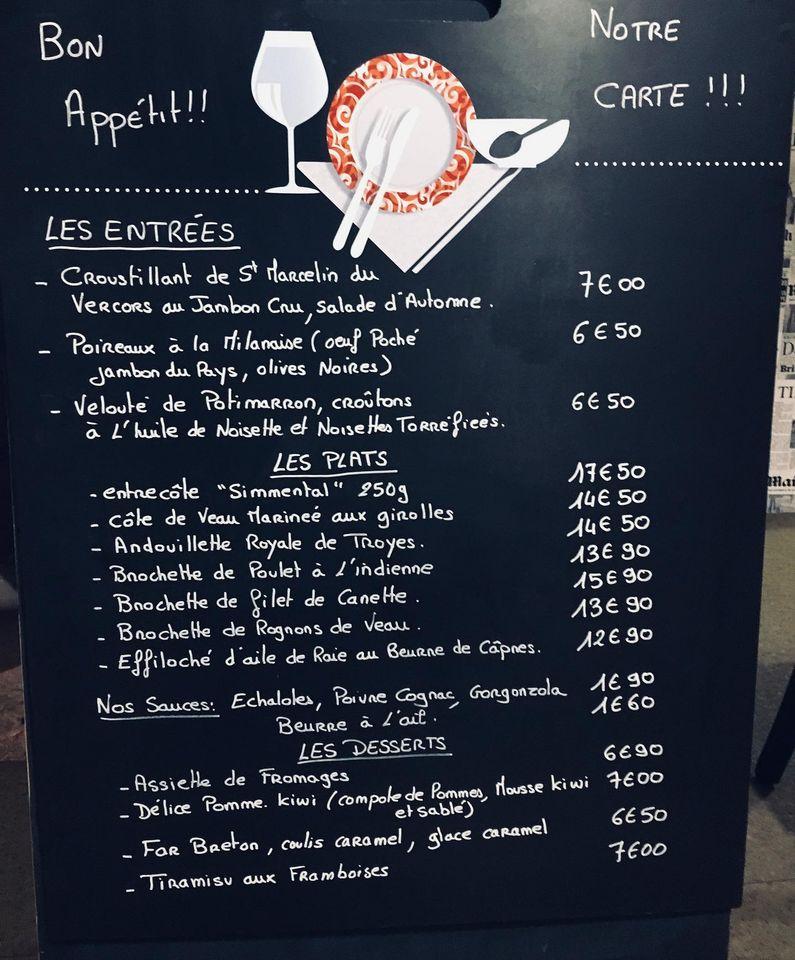 Bon
Appétit!!
Notre
Carte !!!
LES ENTRÉES
- Croustillant de St Marcelin du
Vercors au Jambon Cru, salade d'Automne. 7€00
- Poireaux à la Milanaise (oeuf Poché 6€50
jambon du Pays, olives Noires)
- Velouté de Potimarron, croûtons 6€50
à L'huile de Noisette et Noisettes Torréfiées.
LES PLATS
- entrecôte "Simmental" 250g 17€50
- côte de Veau Marineé aux girolles 14€50
- Andouillette Royale de Troyes. 14€50
- Brochette de Poulet à L'indienne 13€90
- Brochette de filet de Canette. 15€90
- Brochette de Rognons de Veau. 13€90
- Effiloché d'aile de Raie au Beurre de Câpres. 12€90
Nos Sauces: Echalotes, Poivre Cognac, Gorgonzola 1€90
Beurre à L'ail. 1€60
LES DESSERTS
- Assiette de Fromages 6€90
- Délice Pomme. kiwi (compote de Pommes, Mousse kiwi 7€00
et sablé)
- Far Breton, coulis caramel, glace caramel 6€50
- Tiramisu aux Framboises 7€00